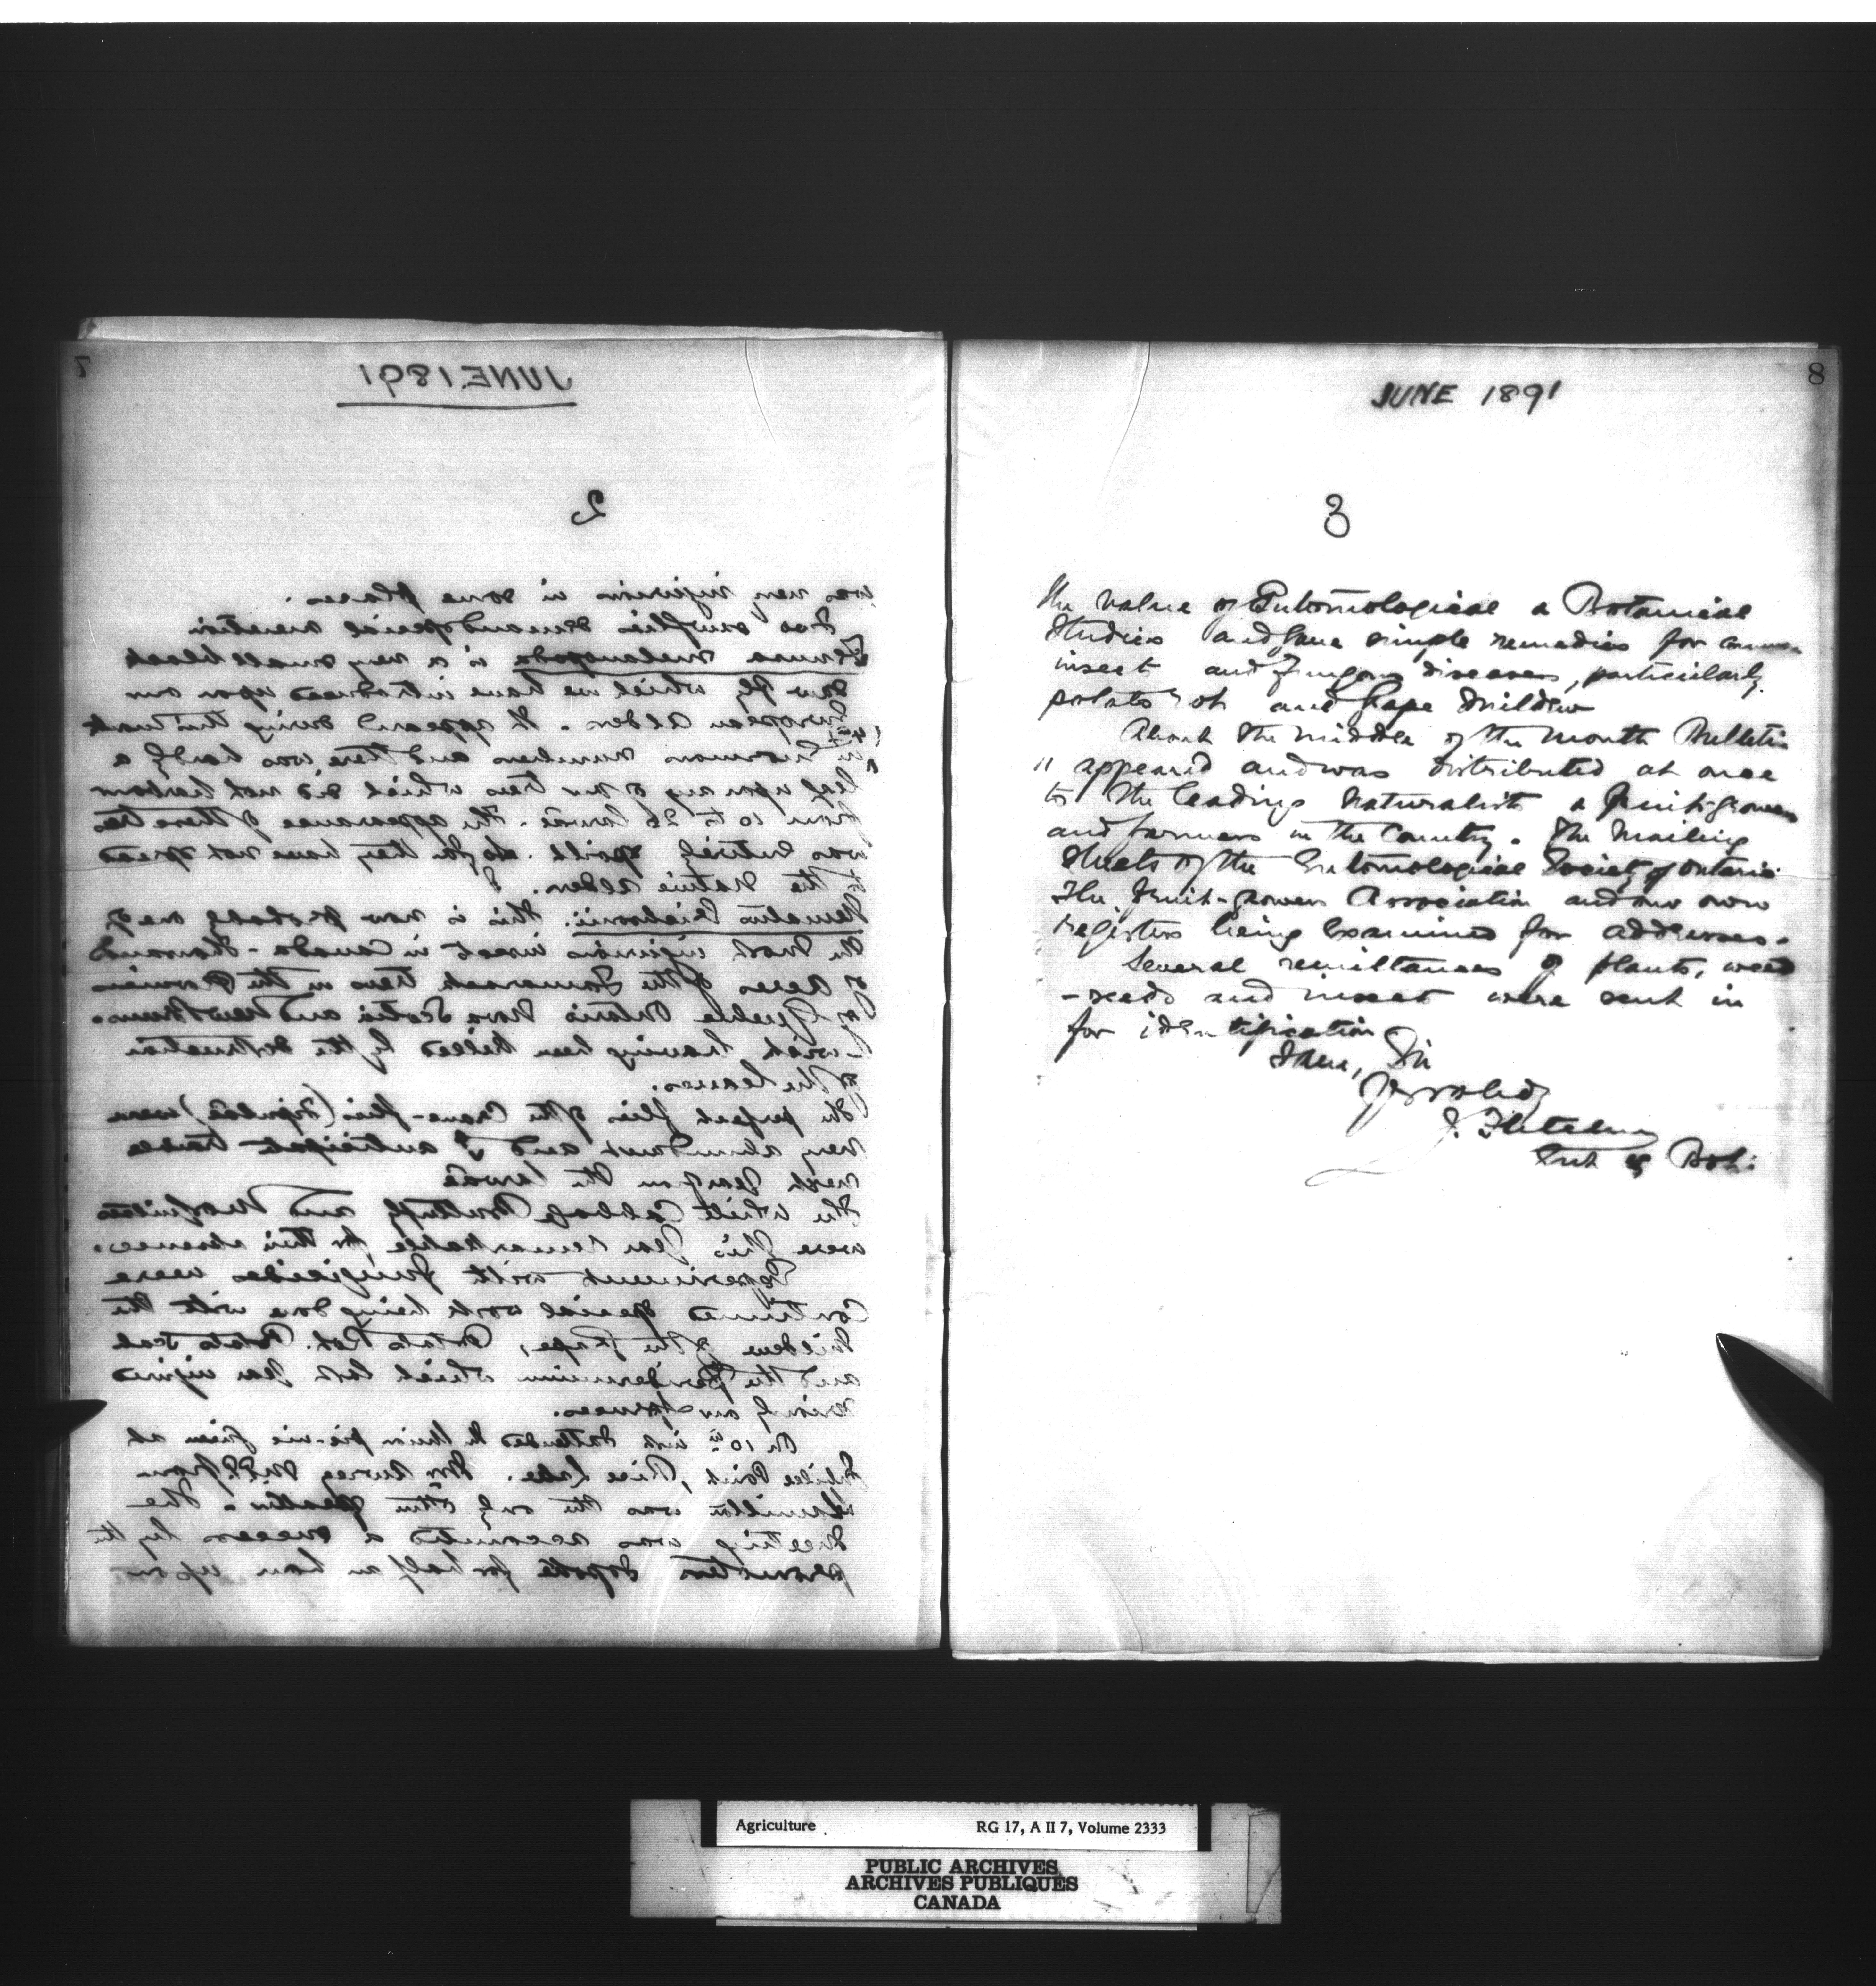 7
JUNE 1891
2
was very injurious in some places.
Two sawflies demand special mention
Fenusa melanopoda is a very small black
Saw fly which we have introduced upon our
European Alder. It appeared during this month
in Enormous numbers and there was hardly a
leaf upon any of our trees which did not harbour
from 10 to 26 larvae. The appearance of these trees
was entirely spoilt. So far they have not spread
to the Native alder.
Nematus Erichsonii. This is now probably one of
the most injurious insects in Canada - thousands
of acres of the Tamarack trees in the Provinces
of Quebec Ontario Nova Scotia and New Bruns-
wick having been killed by the destruction
of the leaves.
The perfect flies of the Crane-flies (Tipulidae) were
very abundant and I anticipate trouble
next year from the larvae
The White Cabbage Butterfly and Mosquitoes
were this year remarkable for their absence.
Experiments with fungicides were
Continued special work being done with the
Mildew of the Grape, Potato Rot, Potato Scab
and the Peridermium which last year injured
our spruces.
On 10th inst I attended the picnic given at
Jubilee Point, Rice Lake. Mr M.P. from
Hamilton was the only other speaker. The
Meeting was accounted a success by the
promoters I spoke for half an hour upon
8
JUNE 1891
3
the value of Entomological & Botanical
Studies and gave simple remedies for common
insect and fungous diseases, particularly
potato rot and Grape Mildew
About the middle of the month Bulletin
11 appeared and was distributed at once
to the leading Naturalists & fruit-growers
and farmers in the Country. The Mailing
Sheets of the Entomological Society of Ontario
The Fruit-growers Association and our own
registers being Examined for addresses.
Several remittances of plants, weed
-seeds and insects were sent in
for identification
I have, Sir
Yrs obedy
J. Fletcher
Ent & Bot:
Agriculture
RG 17, A II 7, Volume 2333
PUBLIC ARCHIVES
ARCHIVES PUBLIQUES
CANADA